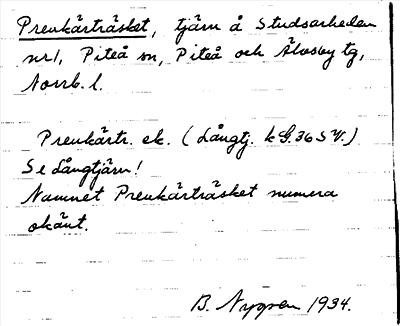 Prenkärträsket, tjärn å Studsarheden
nr1, Piteå sn, Piteå och Älvsby tg,
Norrb. l.
Prenkärtr. ek. (Långtj. k G. 36 S V.)
Se Långtjärn!
Namnet Prenkärträsket numera
okänt.
B. Nygren 1934.